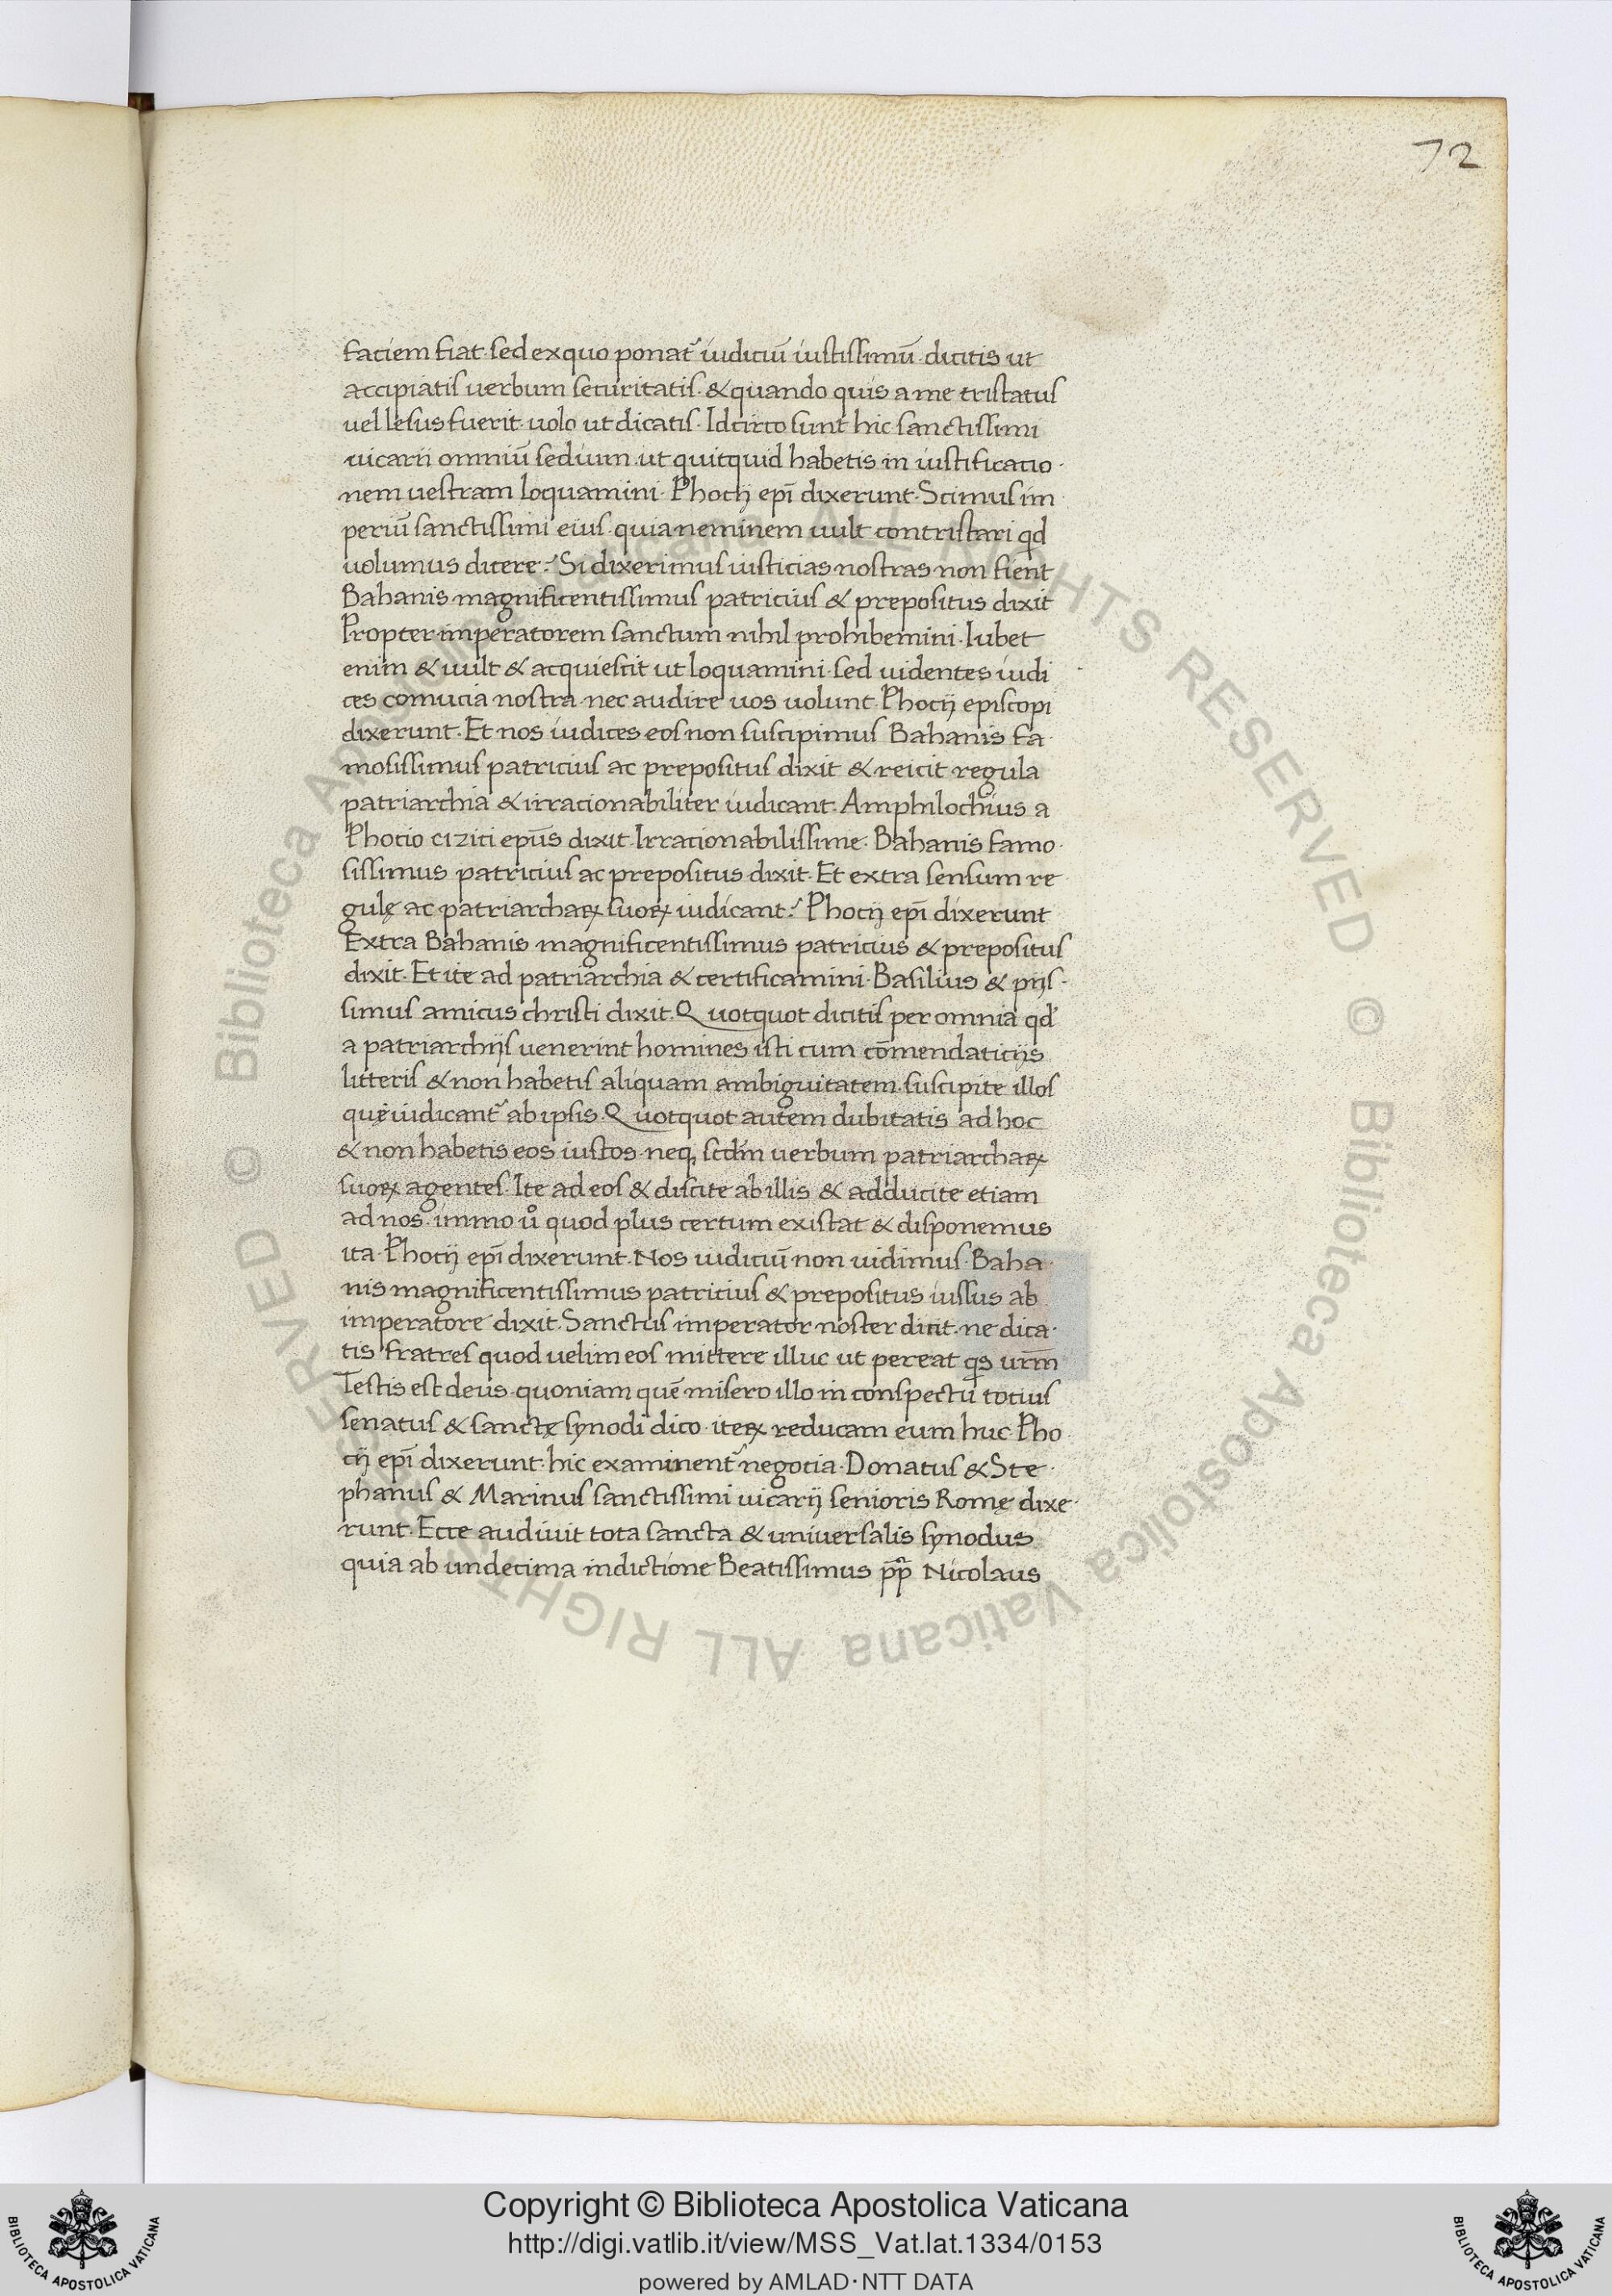 72
faciem fiat· sed ex quo ponat᷑ iudiciū iustissimū· dicitis ut
accipiatis uerbum securitatis· & quando quis a me tristatus
uel lesus fuerit· uolo ut dicatis· Idcirco sunt hic sanctissimi
uicarii omniū sedium· ut quitquid habetis in iustificatio·
nem uestram loquamini· Phocij epī dixerunt· Scimus im
periū sanctissimi eius· quia neminem uult contristari qd
uolumus dicere· Si dixerimus iusticias nostras non fient
Bahanis magnificentissimus patricius & prepositus dixit
Propter imperatorem sanctum nihil prohibemini· Iubet
enim & uult & acquiescit ut loquamini· sed uidentes iudi
ces comucia nostra nec audire uos uolunt· Phocij episcopi
dixerunt· Et nos iudices eos non suscipimus Bahanis fa·
mosissimus patricius ac prepositus dixit & reicit regula
patriarchia & irracionabiliter iudicant· Amphilochius a
Photio cizici epūs dixit· Irracionabilissime· Bahanis famo·
sissimus patricius ac prepositus dixit· Et extra sensum re
gulę ac patriarchaꝝ suoꝝ iudicant· Phocij epī dixerunt
Extra Bahanis magnificentissimus patricius & prepositus
dixit· Et ite ad patriarchia & certificamini· Basilius & pijs·
simus amicus christi dixit· Quotquot dicitis per omnia qd
a patriarchijs uenerint homines isti cum cōmendaticijs
litteris & non habetis aliquam ambiguitatem· suscipite illos
quę iudicant᷑ ab ipsis· Quotquot autem dubitatis ad hoc
& non habetis eos iustos neq; scdm uerbum patriarchaꝝ
suoꝝ agentes· Ite ad eos & discite ab illis & adducite etiam
ad nos· immo uͦ quod plus certum existat & disponemus
ita· Phocij epī dixerunt· Nos iudiciū non uidimus· Baha·
nis magnificentissimus patricius & prepositus iussus ab
imperatore dixit· Sanctus imperator noster dicit· ne dica·
tis fratres quod uelim eos mittere illuc ut pereat qs urm̄
Testis est deus· quoniam quē misero illo in conspectu totius
senatus & sanctę synodi dico· iteꝝ reducam eum huc· Pho
cij epī dixerunt· hic examinent᷑ negotia· Donatus & Ste·
phanus & Marinus sanctissimi uicarij senioris Romę dixe·
runt· Ecce audiuit tota sancta & uniuersalis synodus
quia ab undecima indictione Beatissimus pp̄ Nicolaus
© Biblioteca Apostolica Vaticana ALL RIGHTS RESERVED © Biblioteca Apostolica Vaticana ALL RIGHTS RESERVED
Copyright © Biblioteca Apostolica Vaticana
http://digi.vatlib.it/view/MSS_Vat.lat.1334/0153
powered by AMLAD·NTT DATA
BIBLIOTECA APOSTOLICA VATICANA
BIBLIOTECA APOSTOLICA VATICANA